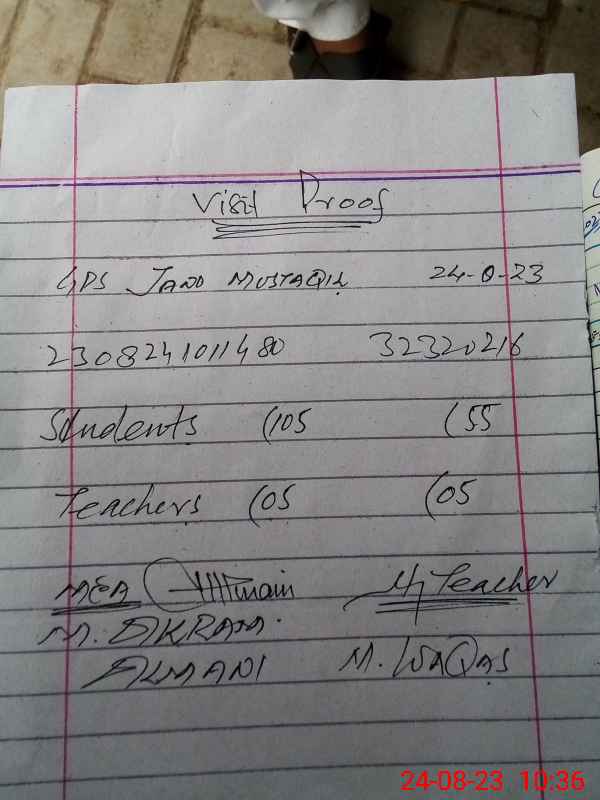 Visit Proof
GPS JANO MUSTAQIL 24-0-23
2308241011480 32320216
Students (105 (55
Teachers (05 (05
MEA H/Teacher
M. AKRAM.
ALMANI M. WAQAS
24-08-23 10:36